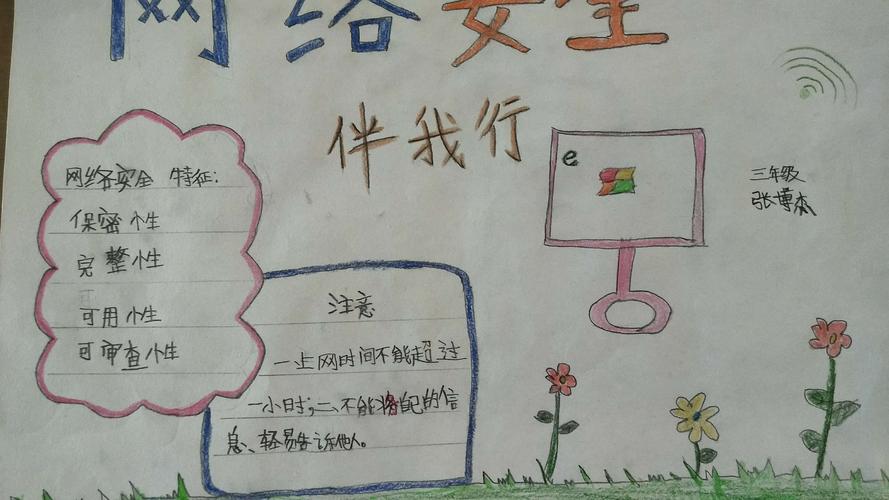 网络安全
伴我行
e
三年级
张博
网络安全 特征:
保密性
完整性
可用性
可审查性
注意
一上网时间不能超过
一小时;二、不能将自己的信
息、轻易告诉他人。